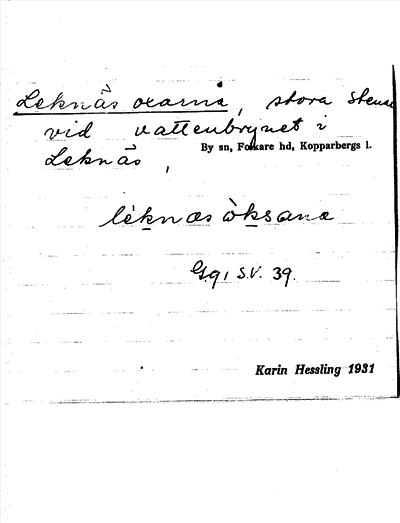 Leknäs oxarna, stora stenar
vid vattenbrynet i
Leknäs,
By sn, Folkare hd, Kopparbergs l.
lèknæs òksana
S.V. 39.
Karin Hessling 1931